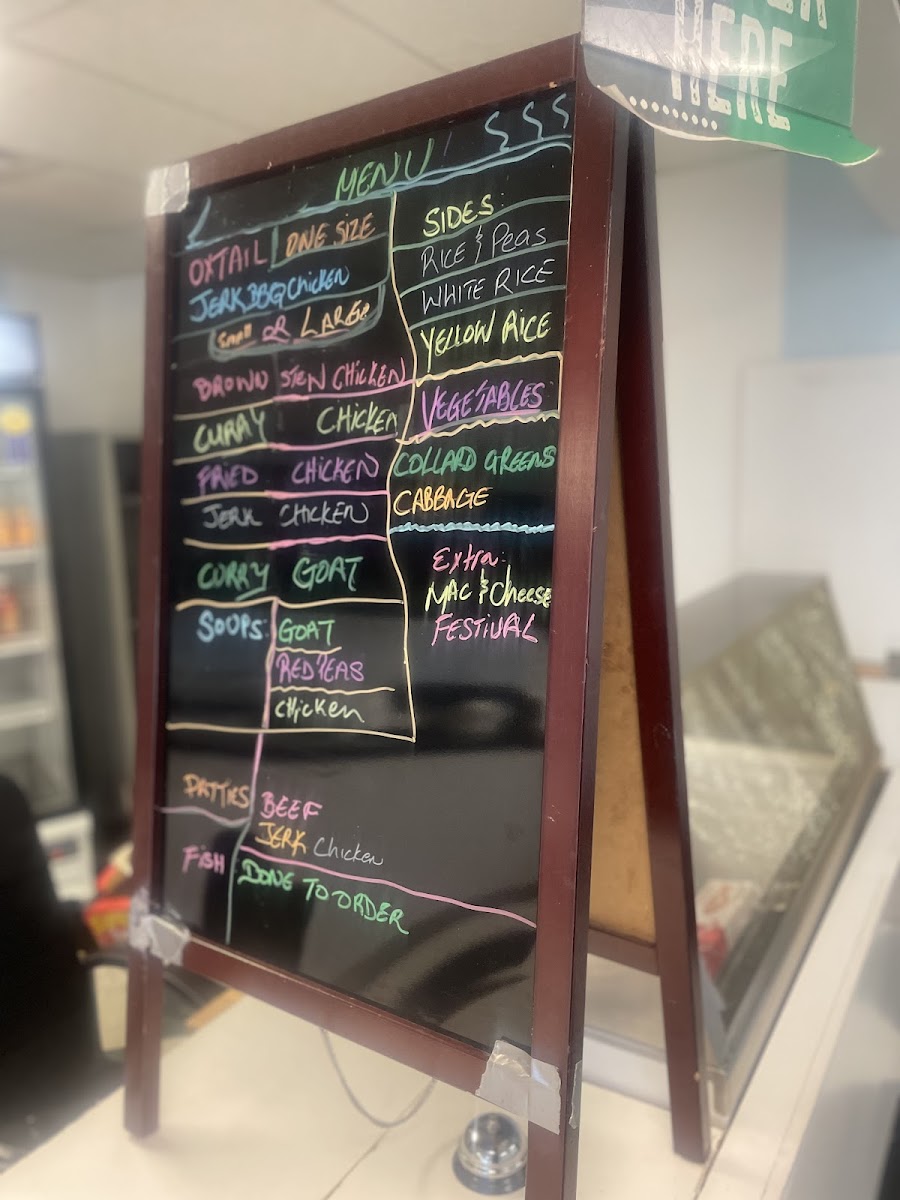 HERE
MENU
OXTAIL ONE SIZE
JERK BBQ CHICKEN
Small OR LARGE
BROWN STEW CHICKEN
CURRY CHICKEN
FRIED CHICKEN
JERK CHICKEN
CURRY GOAT
SOUPS: GOAT
RED PEAS
CHICKEN
PATTIES BEEF
JERK Chicken
FISH DONE TO ORDER
SIDES:
RICE & Peas
WHITE RICE
YELLOW RICE
VEGETABLES
COLLARD GREENS
CABBAGE
Extra:
MAC & Cheese
FESTIVAL